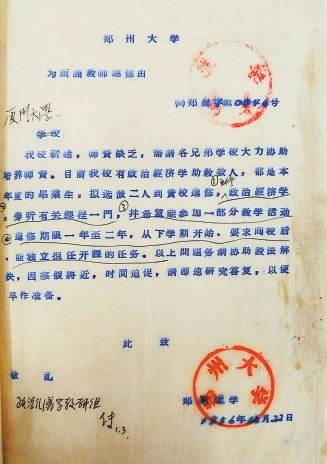 郑州大学
为商洽教师进修由
郑
号
厦门大学:
学校
我校新建，师资缺乏，需请各兄弟学校大力协助
培养师资。目前我校有政治经济学助教数人，都是本
年度的毕业生，拟选派二人到贵校进修，政治经济学
旁听有关课程一门，并希望能参加一部分教学活动
进修期限一年至二年，从下学期开始。要求回校后，
能独立担任开课的任务。以上问题务请协助设法解
决，因寒假将近，时间迫促，请即速研究答复，以便
早作准备。
此致
敬礼
郑州大学
政治经济学教研组
1.3.
1956年12月22日